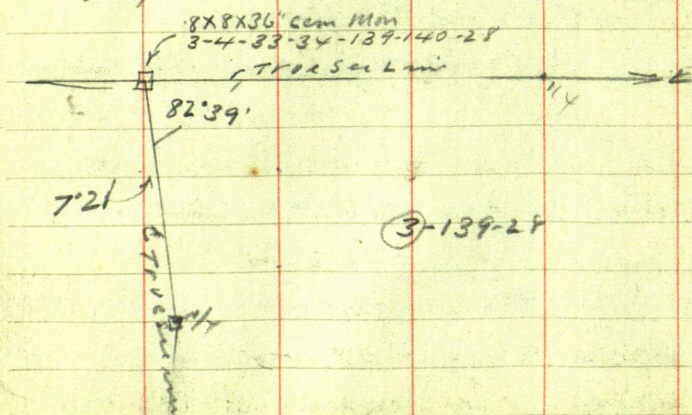 8X8X36" Cem Mon
3-4-33-34-139-140-28
True Sec Line
1/4
82°39'
7°21'
3-139-28
℄ True Sec Line
1/4